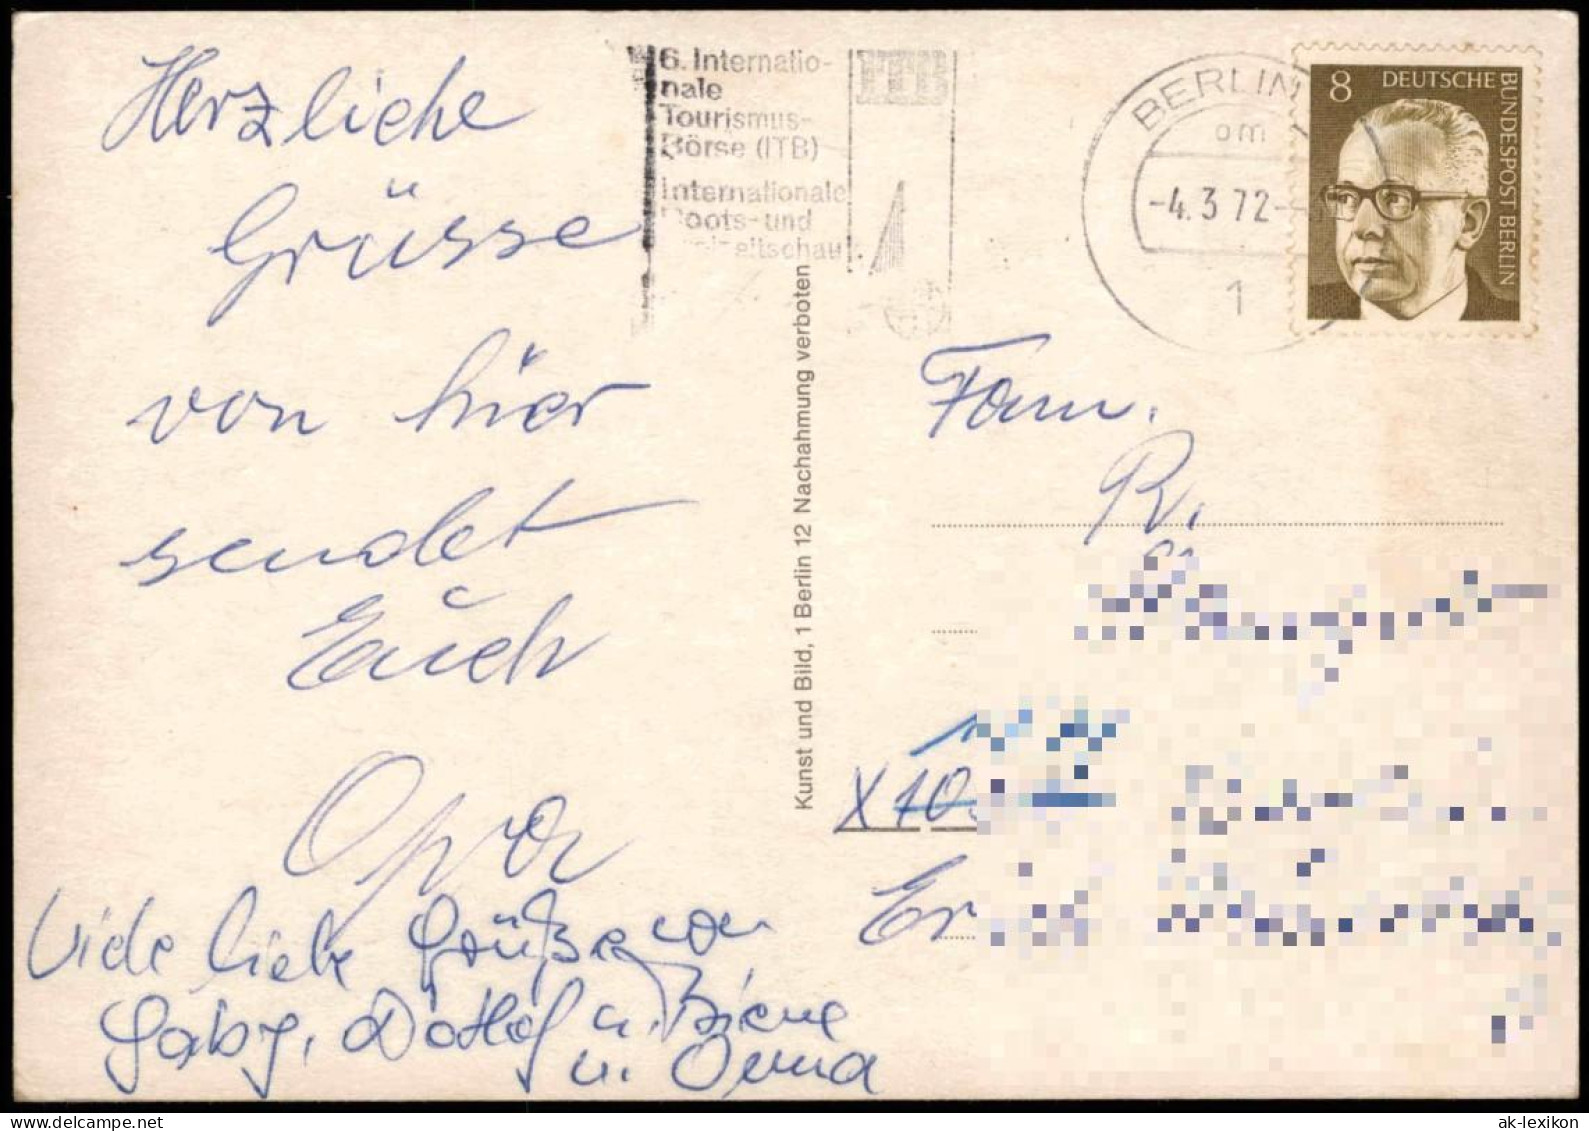 Herzliche
Grüsse
von hier
sendet
Euch
Opa
Viele liebe Grüße von
Gaby, Detlef u. Biene
u. Omma
6. Internatio-
nale
Tourismus-
Börse (ITB)
Internationale
Boots- und
ITB
BERLIN
-4.3.72-
1
8 DEUTSCHE
BUNDESPOST BERLIN
Kunst und Bild, 1 Berlin 12 Nachahmung verboten
Fam.
R.
X 10
Er
www.delcampe.net
ak-lexikon